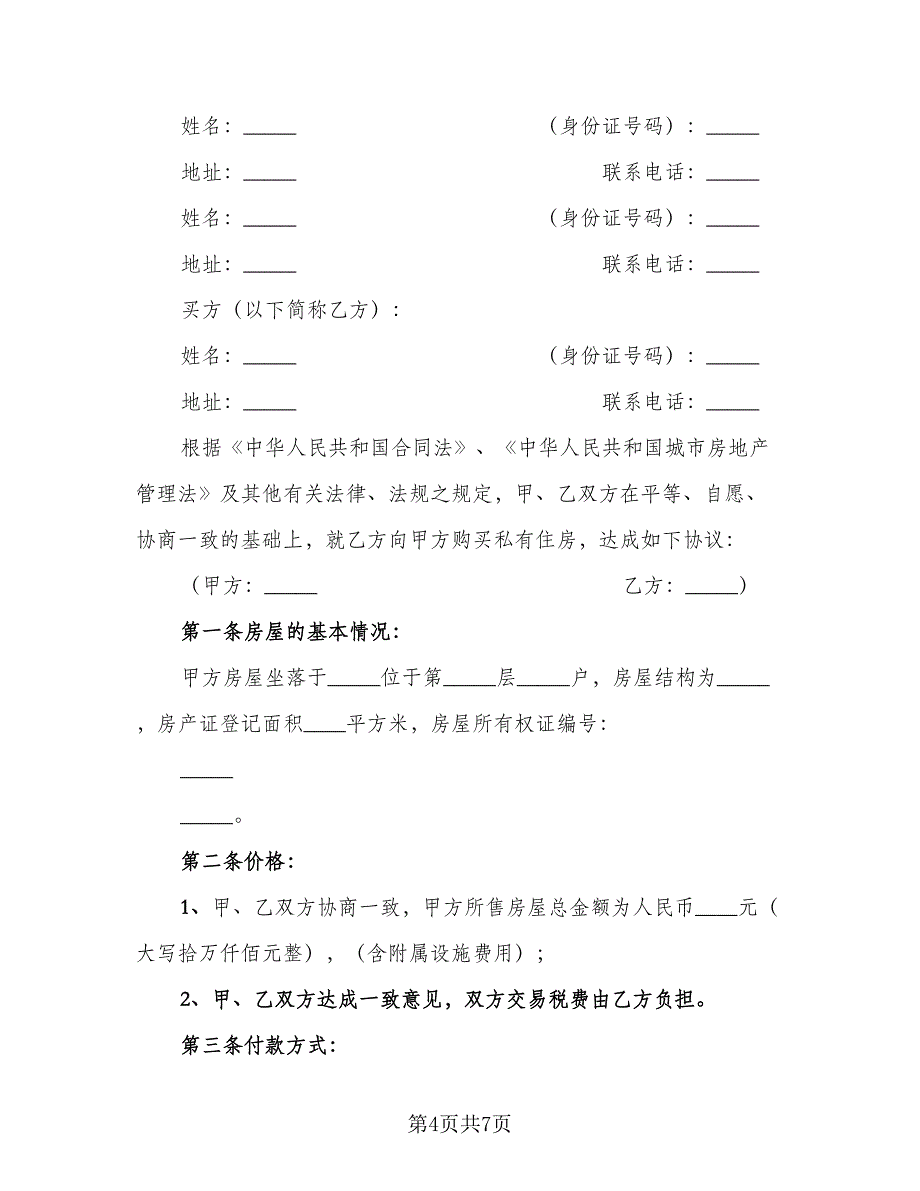 姓名：_____ （身份证号码）：_____
地址：_____ 联系电话：_____
姓名：_____ （身份证号码）：_____
地址：_____ 联系电话：_____
买方（以下简称乙方）：
姓名：_____ （身份证号码）：_____
地址：_____ 联系电话：_____
根据《中华人民共和国合同法》、《中华人民共和国城市房地产
管理法》及其他有关法律、法规之规定，甲、乙双方在平等、自愿、
协商一致的基础上，就乙方向甲方购买私有住房，达成如下协议：
（甲方：_____ 乙方：_____）
第一条房屋的基本情况：
甲方房屋坐落于_____位于第_____层_____户，房屋结构为_____
，房产证登记面积____平方米，房屋所有权证编号：
_____
_____。
第二条价格：
1、甲、乙双方协商一致，甲方所售房屋总金额为人民币____元（
大写拾万仟佰元整），（含附属设施费用）；
2、甲、乙双方达成一致意见，双方交易税费由乙方负担。
第三条付款方式：
第4页共7页